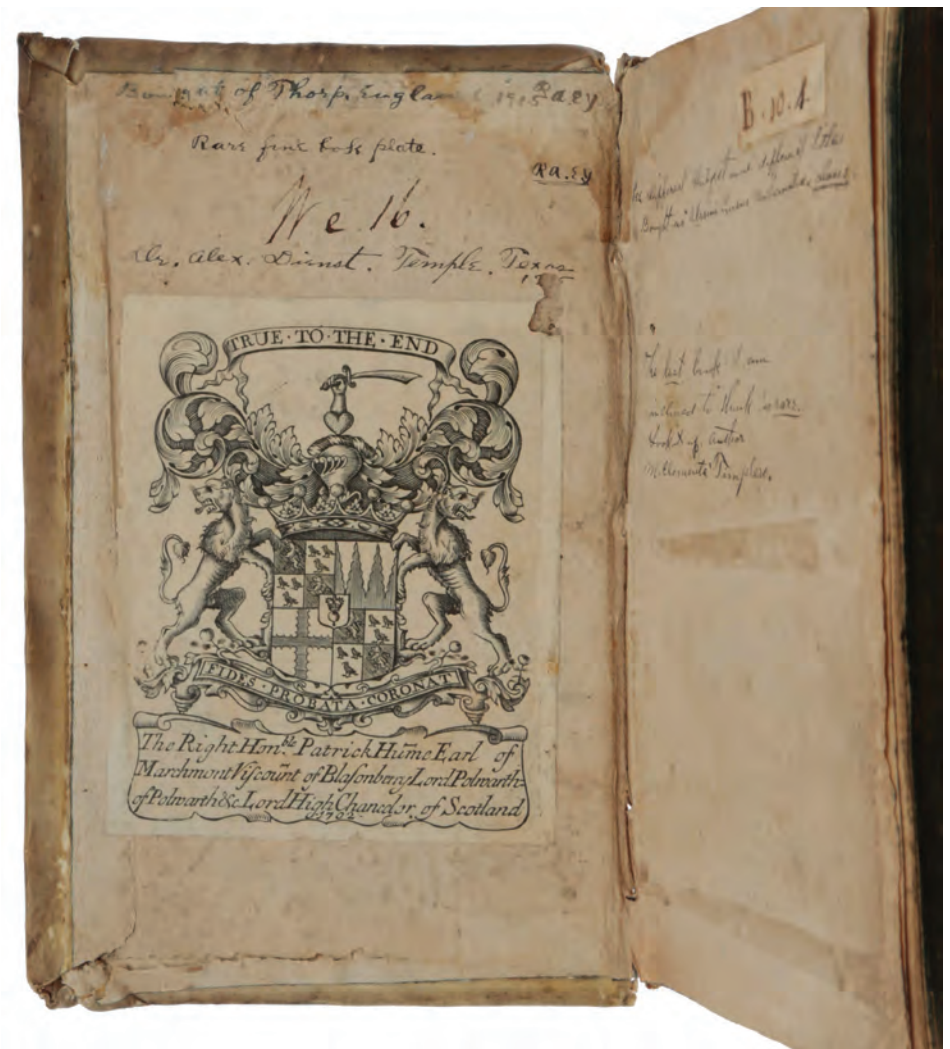 Bought of Thorp, England 1915 Ra.ey
Rare fine book plate.
Ra.ey
We 16.
Dr. Alex. Dienst. Temple. Texas
TRUE·TO·THE·END
FIDES·PROBATA·CORONAT
The Right Hon.ble Patrick Hume Earl of
Marchmont Viſcount of Blaſonberry Lord Polwarth
of Polwarth &c. Lord High Chancelor of Scotland
1702
B.10.4.
different different
Bought
The last book I am
inclined to think is rare.
Look up author
Templars.